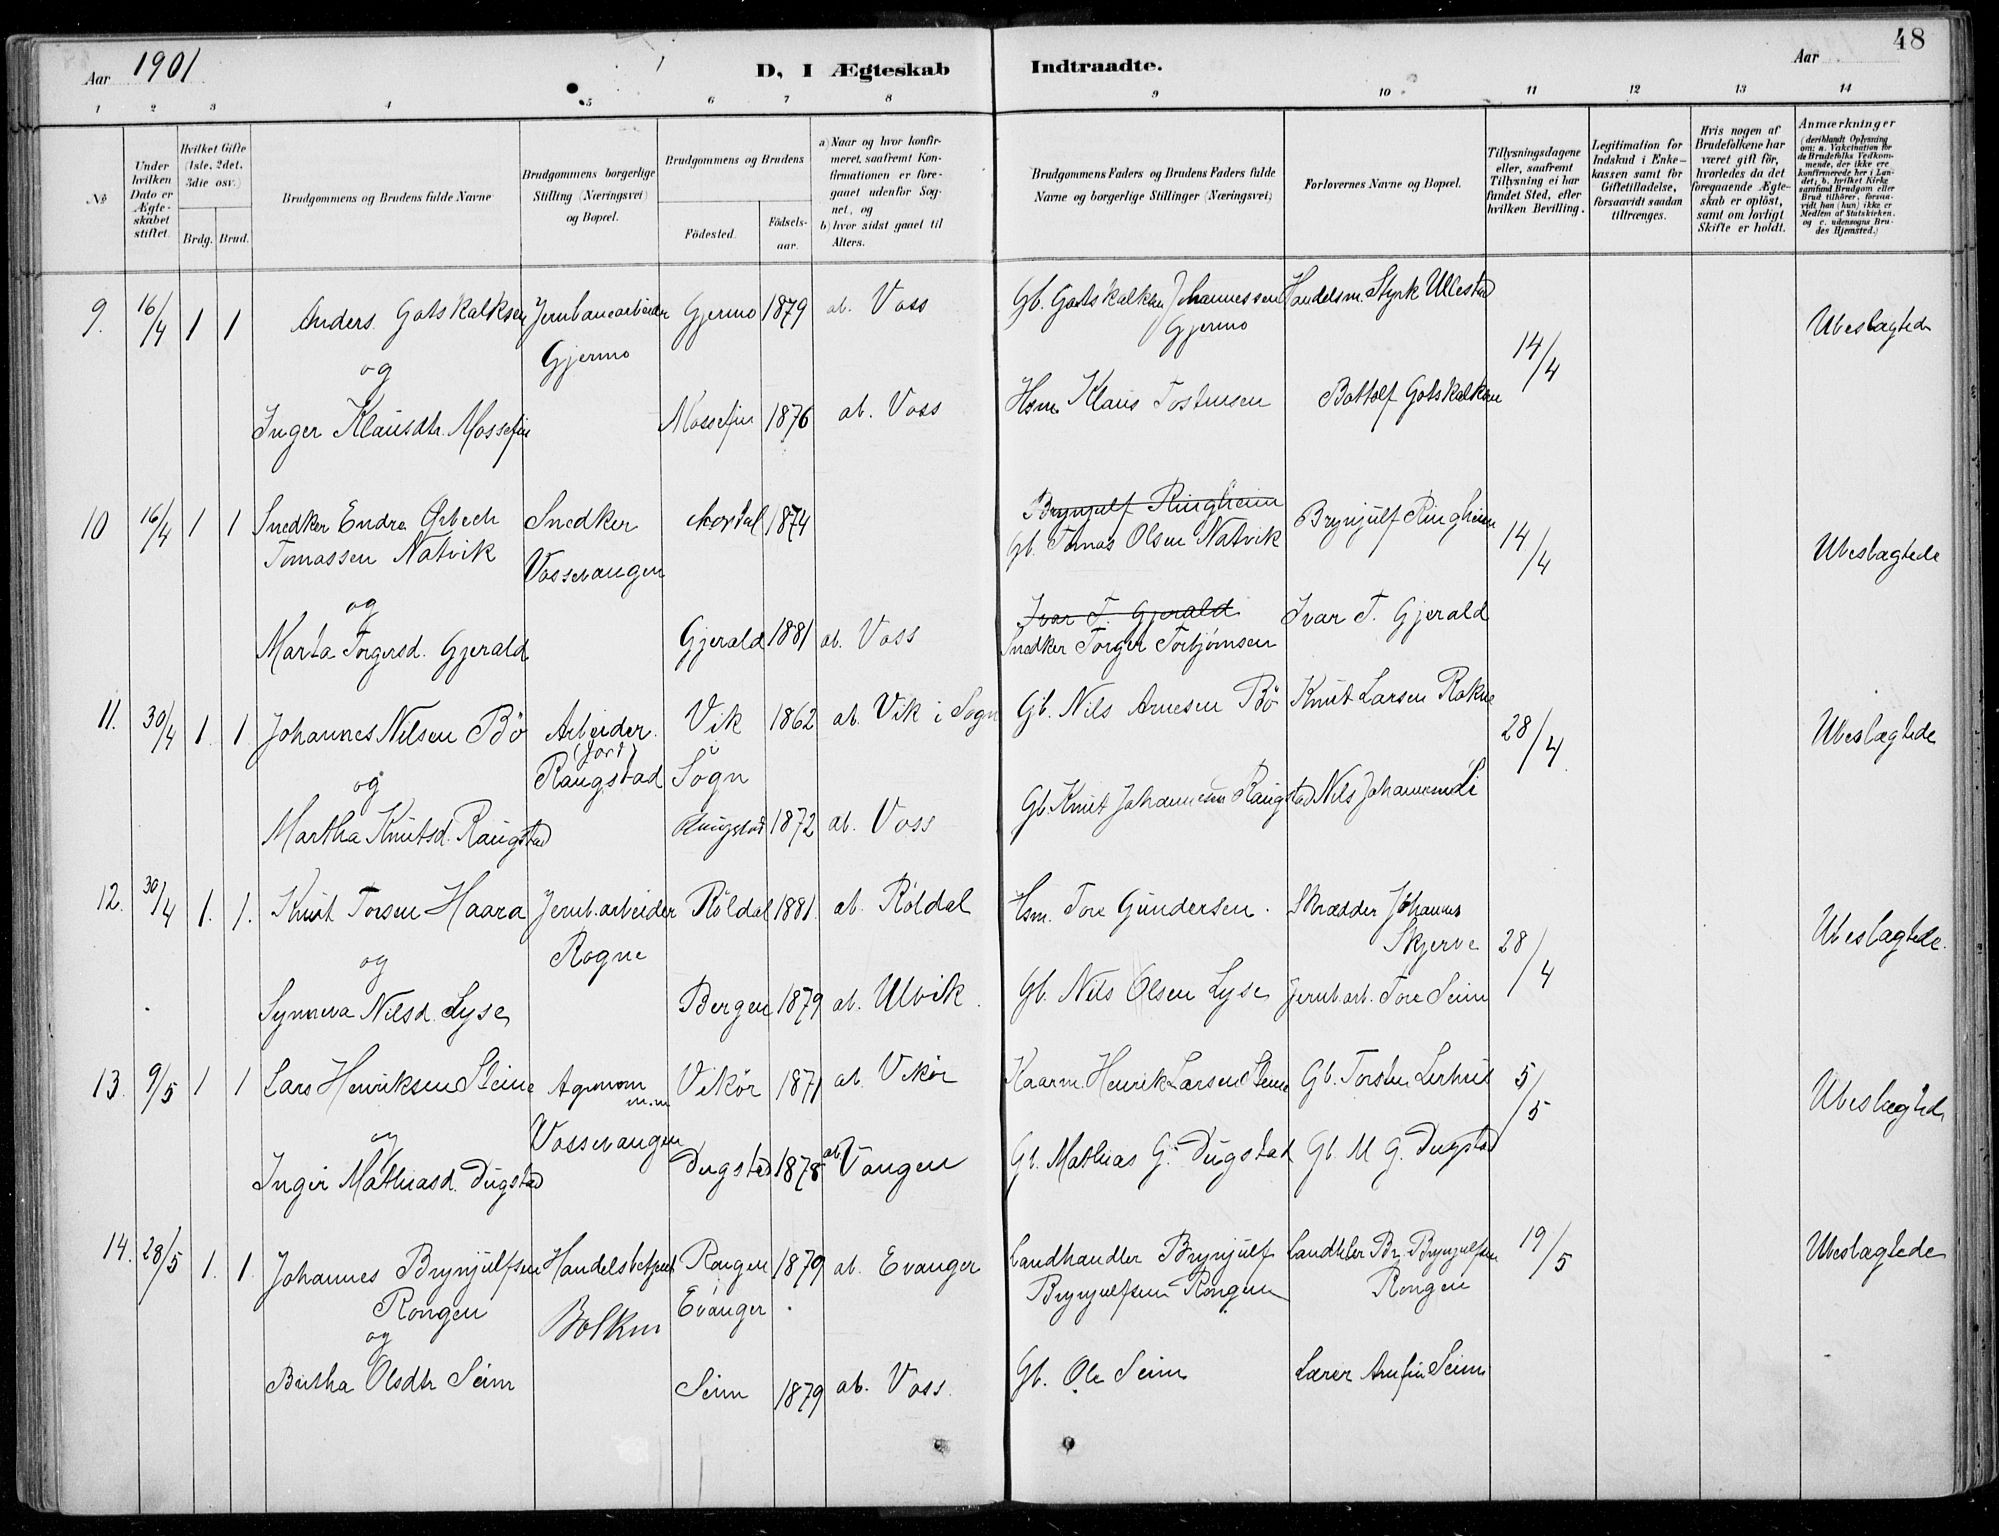 Aar 1901
D, I Ægteskab
Indtraadte.
Aar
48
1 2 3 4 5 6 7 8 9 10 11 12 13 14
No
Under hvilken Dato er Ægteskabet stiftet.
Hvilket Gifte (1ste, 2det, 3die osv.)
Brdg. Brud.
Brudgommens og Brudens fulde Navne
Brudgommens borgerlige Stilling (Næringsvei) og Bopæl.
Brudgommens og Brudens
Födested.
Födselsaar.
a) Naar og hvor konfirmeret, saafremt Konfirmationen er foregaaet udenfor Sognet, og
b) hvor sidst gaaet til Alters.
Brudgommens Faders og Brudens Faders fulde Navne og borgerlige Stillinger (Næringsvei)
Forlovernes Navne og Bopæl.
Tillysningsdagene eller, saafremt Tillysning ei har fundet Sted, efter hvilken Bevilling.
Legitimation for Indskud i Enkekassen samt for Giftetilladelse, forsaavidt saadan tiltrænges.
Hvis nogen af Brudefolkene har været gift för, hvorledes da det foregaaende Ægteskab er oplöst, samt om lovligt Skifte er holdt.
Anmærkninger (deriblandt Oplysning om: a. Vakcination for de Brudefolks Vedkommende, der ikke ere konfirmerede her i Landet; b. hvilket Kirkesamfund Brudgom eller Brud tilhörer, forsaavidt han (hun) ikke er Medlem af Statskirken, og c. udensogns Brudes Hjemsted.)
9. 16/4 1 1 Anders Gotskalksen Jernbanearbeider Gjermo 1879 ab. Voss Gb. Gotskalk Johannessen Handelsm. Styrk Ullestad
Gjermo Gjermo 14/4 Ubeslægtede
og
Inger Klausdtr. Mossefin Mossefin 1876 ab. Voss Hsm Klaus Tostensen Bottolf Gotskalksen
10 16/4 1 1 Snedker Endre Ørbech Snedker 1874 Brynjulf Ringheim Brynjulf Ringheim
Tomassen Natvik Vossevangen Gb. Tomas Olsen Natvik 14/4 Ubeslægtede
og Ivar T. Gjerald Ivar T. Gjerald
Marta Torgersd. Gjerald Gjerald 1881 ab. Voss Snedker Torger Torbjørnsen
11. 30/4 1. 1. Johannes Nilsen Bö Arbeider Vik 1862 ab. Vik i Sogn Gb. Nils Arnesen Bö Knut Larsen Rokne 28/4 Ubeslægtede
(Jord)
og Raugstad Sogn
Martha Knutsd. Raugstad Raugstad 1872 ab. Voss Gb. Knut Johannesen Raugstad Nils Johannes Li
12. 30/4 1. 1. Knut Torsen Haara Jernb.arbeider Röldal 1881. ab. Röldal Hsm. Tore Gundersen. Skrædder Johannes
Skjerve 28/4 Ubeslægtede.
og Rogne
Synneva Nilsd. Lyse Bergen 1879 ab. Ulvik. Gb. Nils Olsen Lyse Jernb.arb. Tore Seim
13. 9/5 1 1 Lars Henriksen Steine Agronom m.m Vikör 1871 ab. Vikör Kaarm. Henrik Larsen Steine Gb. Torsten Lirhus 5/5 Ubeslægtede
og Vossevangen
Inger Mathiasd. Dugstad Dugstad 1878 ab. Vangen Gb. Mathias G. Dugstad Gb. M G. Dugstad
14. 28/5 1. 1. Johannes Brynjulfsen Handelsbetjent Rongen 1879 ab. Evanger Landhandler Brynjulf Landhdler Br. Brynjulfsen 19/5 Ubeslægtede
Rongen Bolken Evanger Brynjulfsen Rongen Rongen
og
Birtha Olsdtr Seim Seim 1879 ab. Voss. Gb. Ole Seim Lærer Arnfin Seim